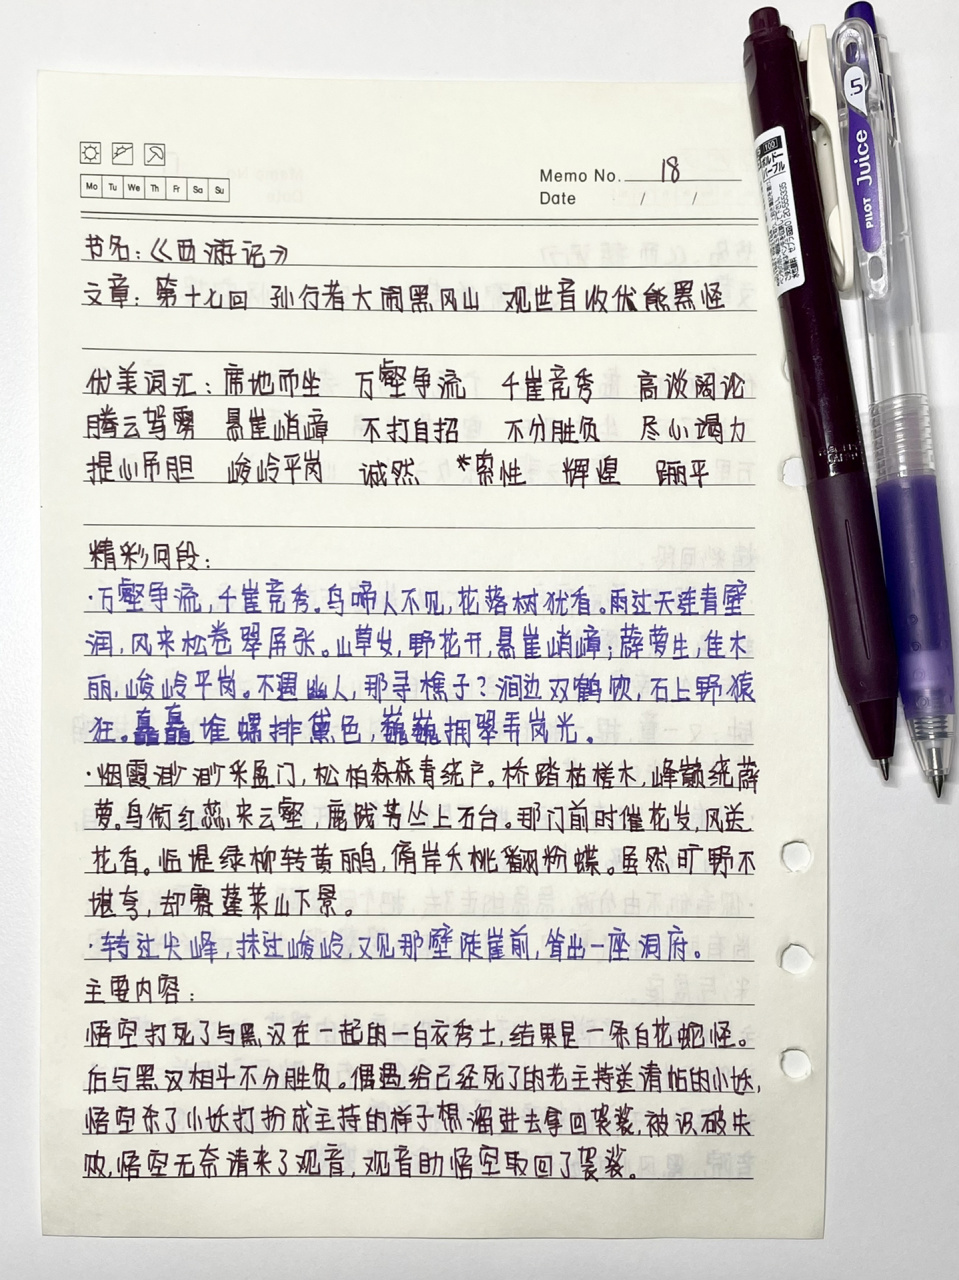 Mo Tu We Th Fr Sa Su
Memo No. 18
Date / /
书名:《西游记》
文章:第十七回 孙行者大闹黑风山 观世音收伏熊黑怪
优美词汇:席地而坐 万壑争流 千崖竞秀 高谈阔论
腾云驾雾 悬崖峭嶂 不打自招 不分胜负 尽心竭力
提心吊胆 峻岭平岗 诚然 *索性 辉煌 蹦平
精彩词段:
·万壑争流,千崖竞秀。鸟啼人不见,花落树犹香。雨过天连青壁
润,风来松卷翠屏张。山草发,野花开,悬崖峭嶂;薜萝生,佳木
丽,峻岭平岗。不遇幽人,那寻樵子?涧边双鹤饮,石上野猿
狂。矗矗堆螺排黛色,巍巍拥翠弄岚光。
·烟霞渺渺采盈门,松柏森森青绕户。桥踏枯槎木,峰巅绕薜
萝。鸟衔红蕊来云壑,鹿践芳丛上石台。那门前时催花发,风送
花香。临堤绿柳转黄鹂,傍岸夭桃翻粉蝶。虽然旷野不
堪夸,却赛蓬莱山下景。
·转过尖峰,抹过峻岭,又见那壁陡崖前,耸出一座洞府。
主要内容:
悟空打死了与黑汉在一起的一白衣秀士,结果是一条白花蛇怪。
后与黑汉相斗不分胜负。偶遇给已经死了的老主持送请帖的小妖,
悟空杀了小妖打扮成主持的样子想溜进去拿回袈裟,被识破失
败,悟空无奈请来了观音,观音助悟空取回了袈裟。
PILOT Juice .5